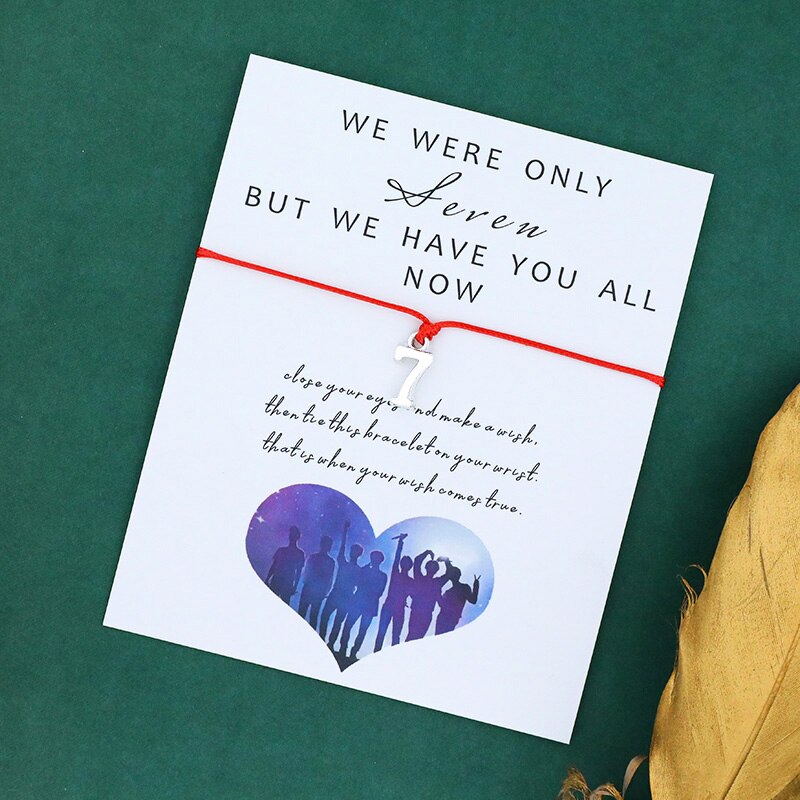 WE WERE ONLY
Seven
BUT WE HAVE YOU ALL
NOW
7
close your eyes and make a wish,
then tie this bracelet on your wrist.
that is when your wish comes true.